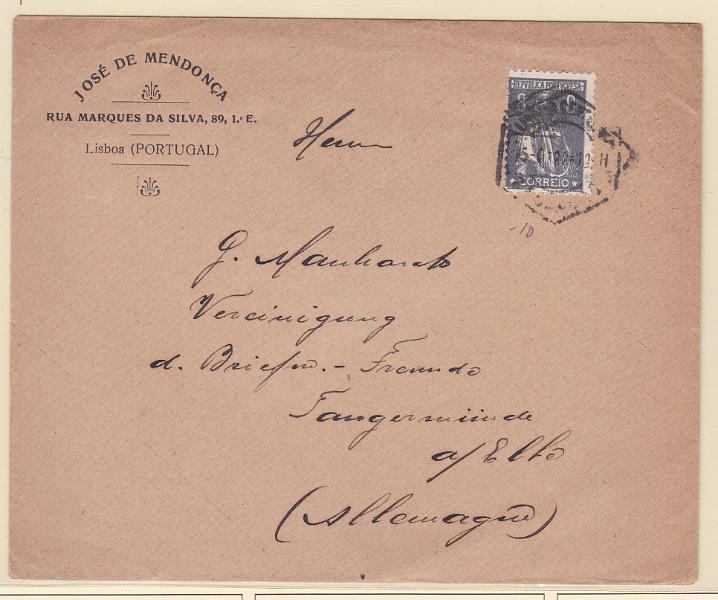 JOSÉ DE MENDONÇA
RUA MARQUES DA SILVA, 89, 1.º E.
Lisboa (PORTUGAL)
REPUBLICA PORTUGUESA
CORREIO
Herrn
G. Manhardt
Vereinigung
d. Briefm.-Freunde
Tangermünde
a/Elbe
(Allemagne)